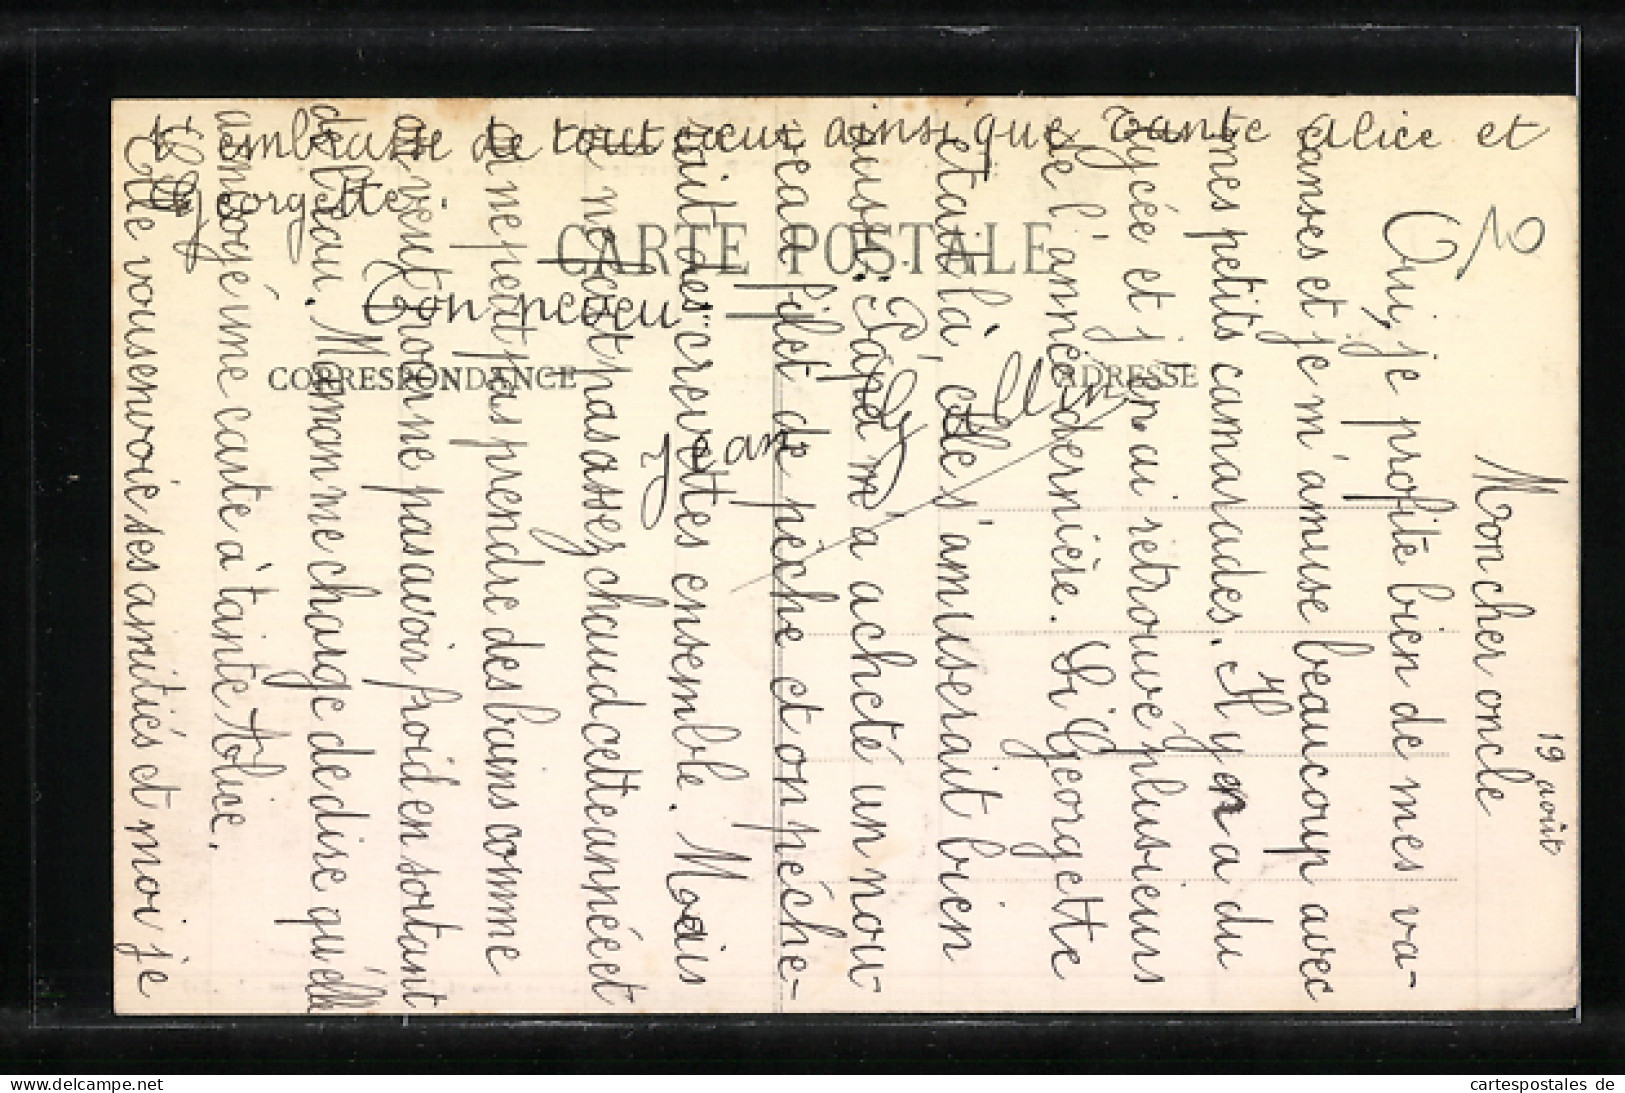 19 août
Mon cher oncle
Oui, je profite bien de mes va-
canses et je m'amuse beaucoup avec
mes petits camarades. Il y en a du
lycée et j'en ai retrouvé plusieurs
de l'année dernière. Si Georgette
était là, elle s'amuserait bien
aussi. Papa m'a acheté un nou-
veau filet de pêche et on pêche-
rait des crevettes ensemble. Mais
il ne fait pas assez chaud cette année et
on ne peut pas prendre des bains comme
on veut pour ne pas avoir froid en sortant
de l'eau. Maman me charge de dire qu'elle
a envoyé une carte à tante Alice.
Elle vous envoie ses amitiés et moi je
t'embrasse de tout cœur ainsi que tante alice et
Georgette.
Ton neveu
Jean
CARTE POSTALE
CORRESPONDANCE
ADRESSE
delcampe.net
cartespostales de